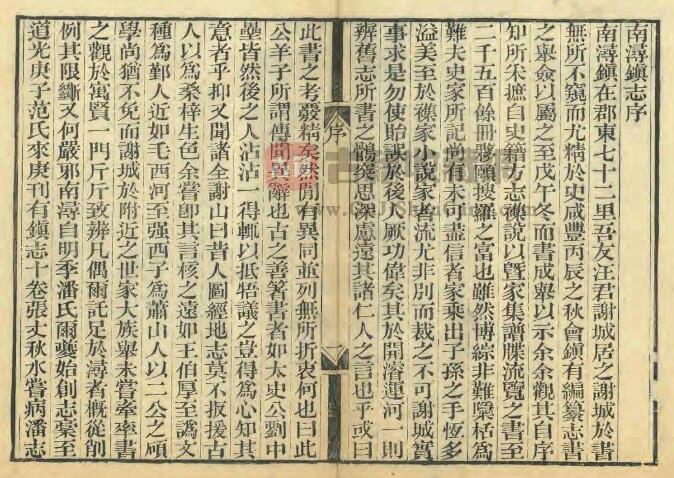 南潯鎭志序
南潯鎭在郡東七十二里吾友汪君謝城居之謝城於書
無所不窺而尤精於史咸豐丙辰之秋會鎭有編纂志書
之舉僉以屬之至戊午冬而書成舉以示余余觀其自序
知所采摭自史籍方志襍說以曁家集譜牒流覽之書至
二千五百餘冊夥頤搜羅之富也雖然博綜非難檃栝爲
難夫史家所記尙有未可盡信者家乘出子孫之手恆多
溢美至於襍家小說家者流尤非別而裁之不可謝城實
事求是勿使貽誤於後人厥功偉矣其於開濬運河一則
辨舊志所書之鶻突思深慮遠其諸仁人之言也乎或曰
序
一
此書之考覈精矣然閒有異同並列無所折衷何也曰此
公羊子所謂傳聞異辭也古之善著書者如太史公劉中
壘皆然後之人沾沾一得輒以抵牾議之豈得爲心知其
意者乎抑又聞諸全謝山曰昔人圖經地志莫不扳援古
人以爲桑梓生色余嘗卽其言核之遠如王伯厚至譌文
種爲鄞人近如毛西河至强西子爲蕭山人以二公之碩
學尙猶不免而謝城於附近之世家大族舉未嘗牽率書
之觀於寓賢一門斤斤致辨凡偶爾託足於潯者槪從削
例其限斷又何嚴邪南潯自明季潘氏爾夔始創志稾至
道光庚子范氏來庚刊有鎭志十卷張丈秋水嘗病潘志